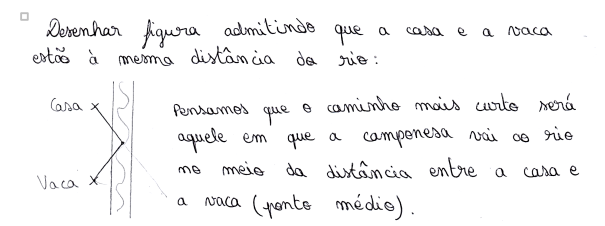 Desenhar figura admitindo que a casa e a vaca
estão à mesma distância do rio:
Casa
Pensamos que o caminho mais curto será
aquele em que a camponesa vai ao rio
no meio da distância entre a casa e
Vaca
a vaca (ponto médio).